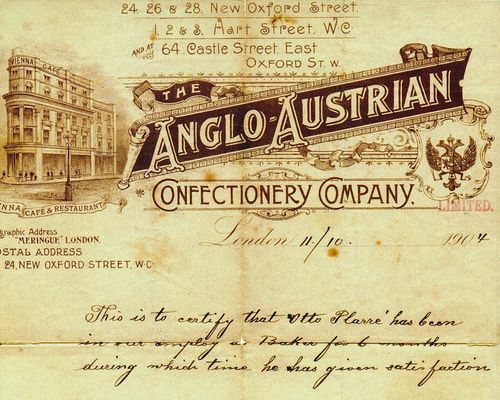 24, 26 & 28, New Oxford Street,
1, 2 & 3, Hart Street, W.C.
AND AT 64, Castle Street, East
OXFORD ST, W.
VIENNA CAFÉ
THE
ANGLO-AUSTRIAN
CONFECTIONERY COMPANY,
LIMITED.
ENNA CAFÉ & RESTAURANT
graphic Address
"MERINGUE" LONDON.
OSTAL ADDRESS
24, NEW OXFORD STREET, W.C.
London 11/10 1904
This is to certify that 'Otto Plarre' has been
in our employ as Baker for 6 months
during which time he has given satisfaction